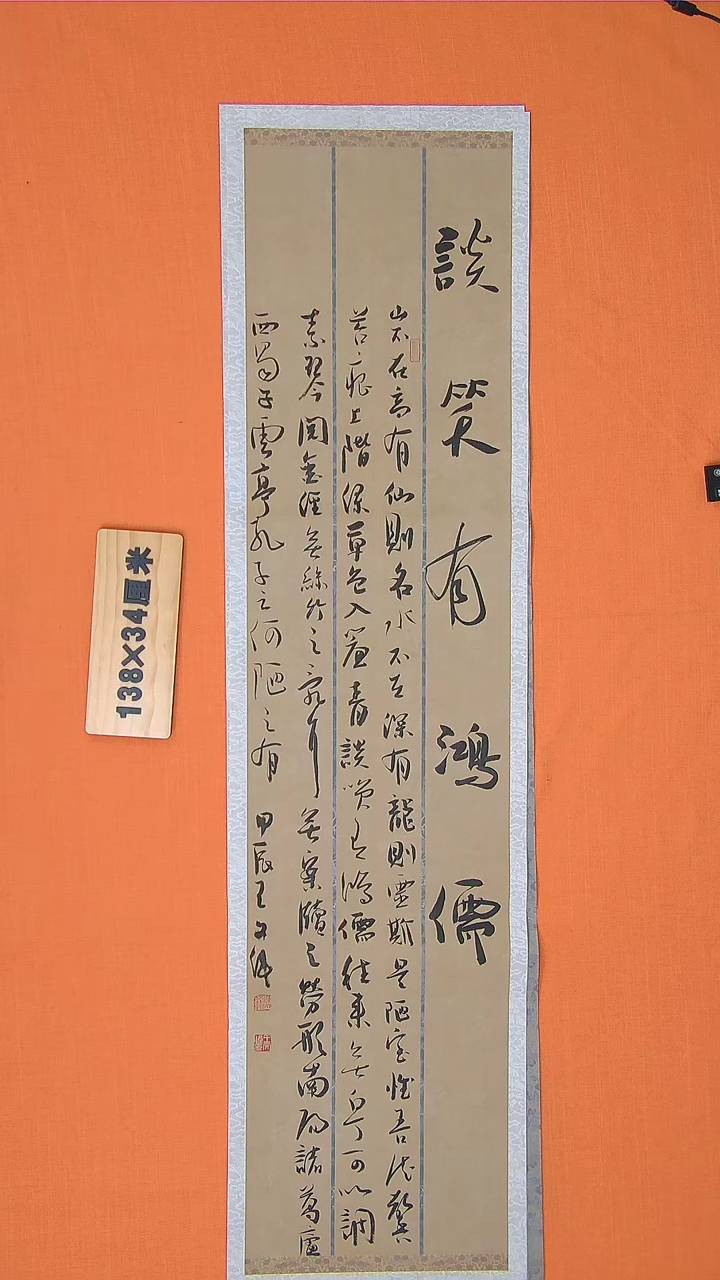 談笑有鴻儒
山不在高有仙則名水不在深有龍則靈斯是陋室惟吾德馨
苔痕上階綠草色入簾青談笑有鴻儒往來無白丁可以調
素琴閱金經無絲竹之亂耳無案牘之勞形南陽諸葛廬
西蜀子雲亭孔子云何陋之有 甲辰王文
138×34厘米